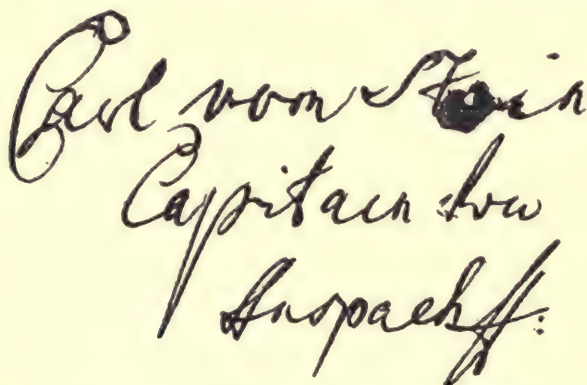 Carl von Stein
Capitain von
Anspach